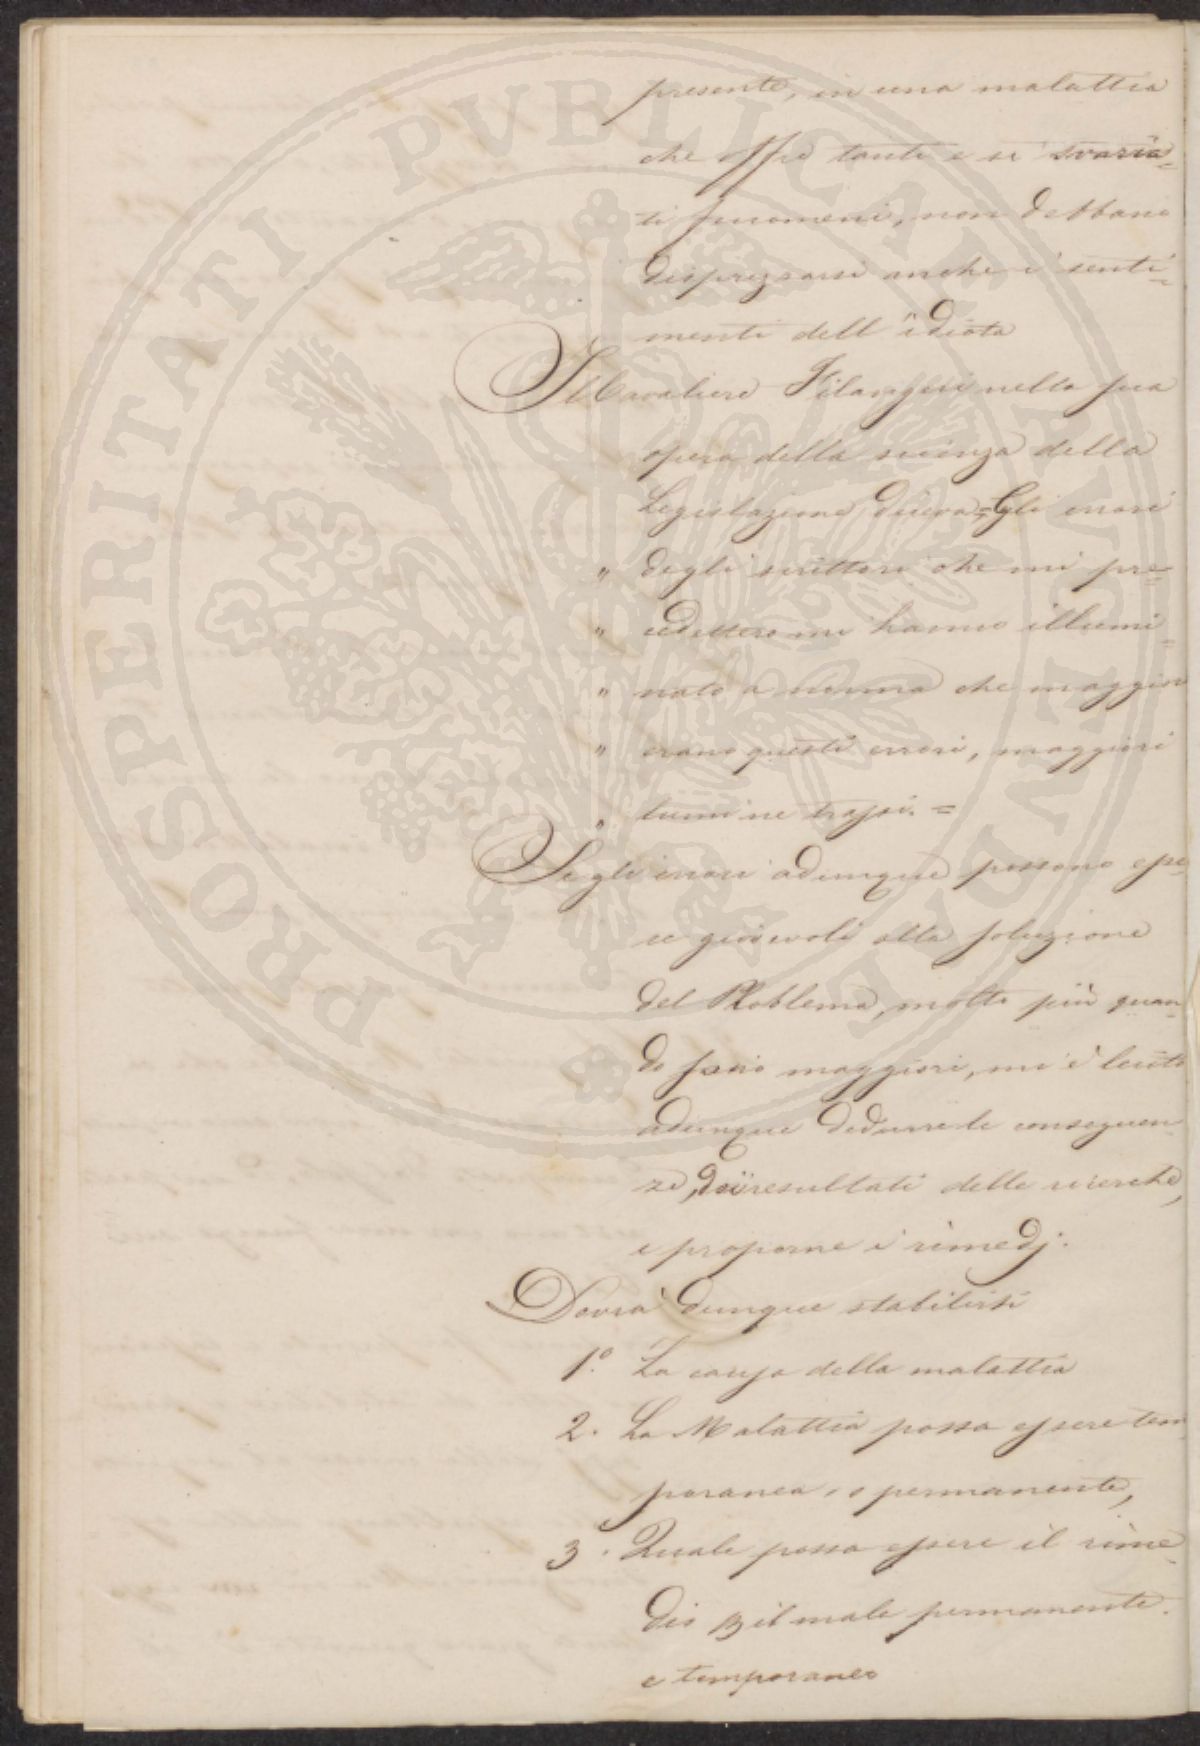 presente, in una malattia
che offre tanti e sì svaria=
ti fenomeni, non debbano
disprezzarsi anche i senti=
menti dell'idiota
Il Cavaliere Filangieri nella sua
opera della scienza della
Legislazione, diceva = Gli errori
" degli scrittori che mi pre=
" cedettero mi hanno illumi=
" nato a misura che maggiori
" erano questi errori, maggiori
" lumi ne trassi. =
Se gli errori adunque possono esse=
re giovevoli alla soluzione
del Problema, molto più quan=
do sono maggiori, mi è lecito
adunque dedurre le conseguen=
ze, dei resultati delle ricerche,
e proporne i rimedj.
Dovrà dunque stabilirsi
1.° La causa della malattia
2. La Malattia possa essere tem
poranea, o permanente,
3. Quale possa essere il rime=
dio il male permanente.
e temporaneo
PROSPERITATI PUBLICAE AUGENDAE